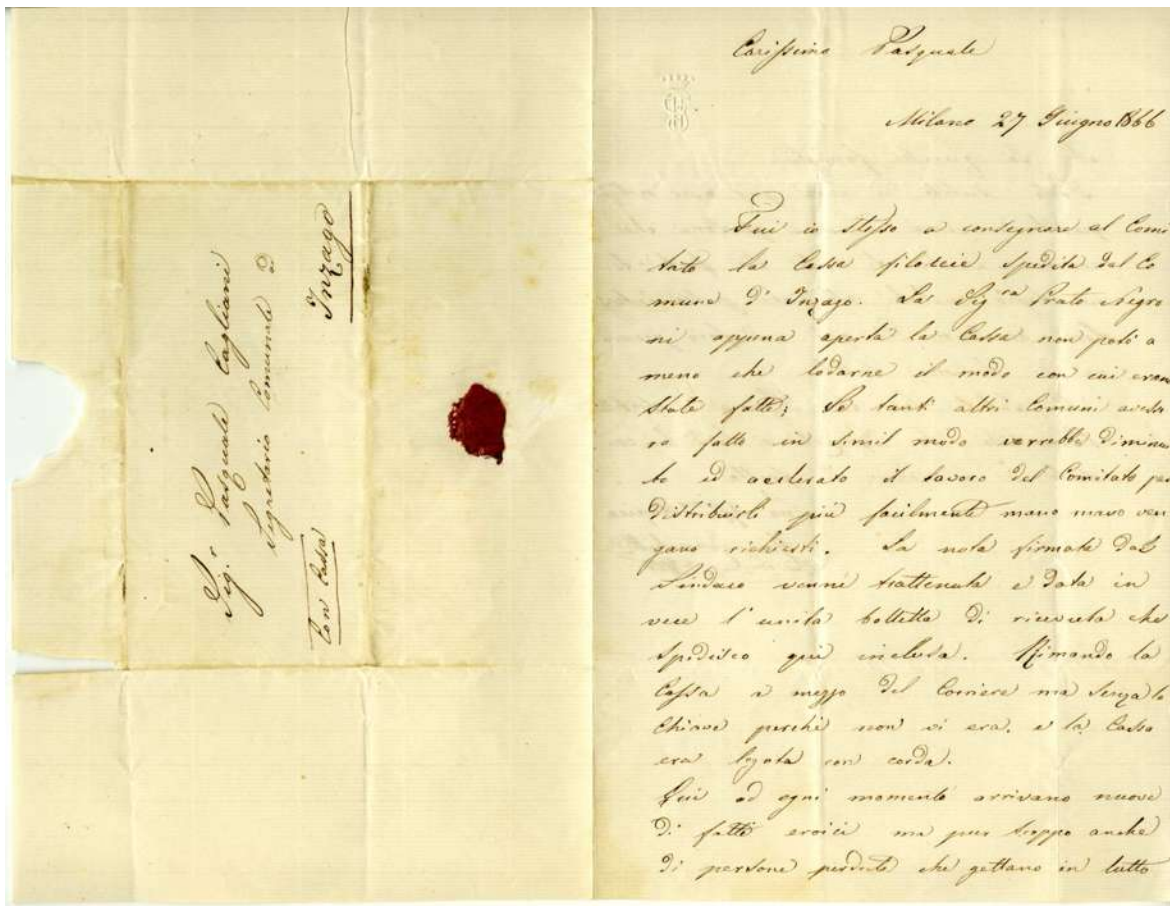 Sig.r Pasquale Cagliani
Segretario Comunale ad
Inzago
Con Cassa
Carissimo Pasquale
Milano 27 Giugno 1866
Fui io stesso a consegnare al Comi
tato la Cassa filaccie spedita dal Co
mune d'Inzago. La Sig.ra Prato Negro
ni appena aperta la Cassa non poté a
meno che lodarne il modo con cui eran
state fatte; Se tanti altri Comuni avesse
ro fatto in simil modo verrebbe diminui
to ed accelerato il lavoro del Comitato per
distribuirli più facilmente mano mano ven
gano richiesti. La nota firmata dal
Sindaco venne trattenuta e data in
vece l'unita bolletta di ricevuta che
spedisco qui inclusa. Rimando la
Cassa a mezzo del Corriere ma senza la
Chiave perché non vi era, e la Cassa
era legata con corda.
Qui ad ogni momento arrivano nuove
di fatti eroici ma pur troppo anche
di persone perdute che gettano in lutto